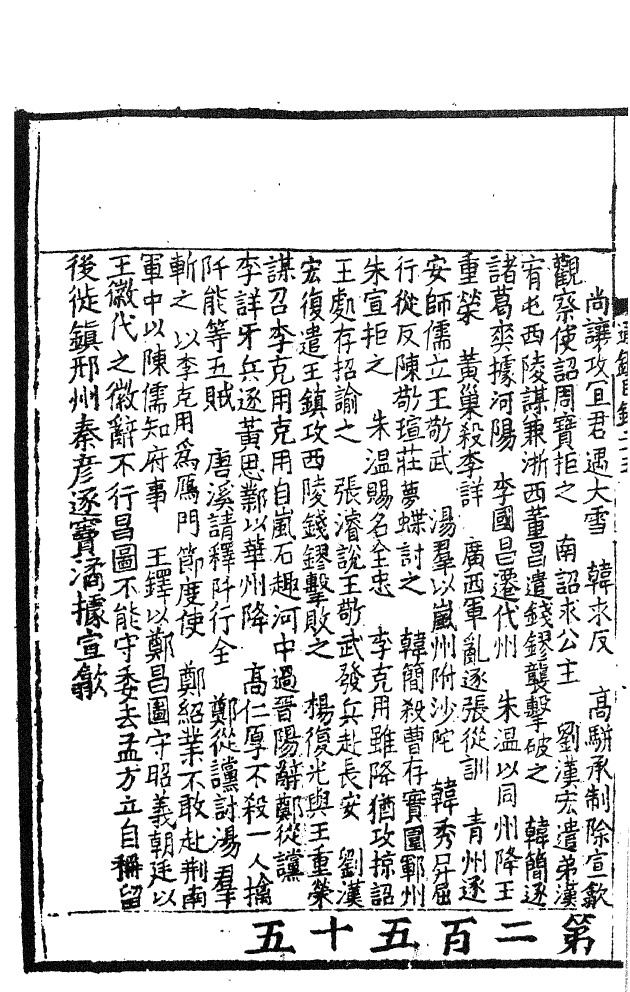 尚讓攻宜君遇大雪　韓求反　高駢承制除宣歙
觀察使詔周寶拒之　南詔求公主　劉漢宏遣弟漢
宥屯西陵謀兼浙西董昌遣錢鏐襲擊破之　韓簡逐
諸葛爽據河陽　李國昌遷代州　朱温以同州降王
重榮　黃巢殺李詳　廣西軍亂逐張從訓　青州逐
安師儒立王敬武　湯羣以嵐州附沙陀　韓秀昇屈
行從反陳敬瑄莊夢蝶討之　韓簡殺曹存實圍鄆州
朱宣拒之　朱温賜名全忠　李克用雖降猶攻掠詔
王處存招諭之　張濬說王敬武發兵赴長安　劉漢
宏復遣王鎮攻西陵錢鏐擊敗之　楊復光與王重榮
謀召李克用克用自嵐石趣河中過晉陽辭鄭從讜
李詳牙兵逐黃思鄴以華州降　高仁厚不殺一人擒
阡能等五賊　唐溪請釋阡行全　鄭從讜討湯羣
斬之　以李克用爲鴈門節度使　鄭紹業不敢赴荆南
軍中以陳儒知府事　王鐸以鄭昌圖守昭義朝廷以
王徽代之徽辭不行昌圖不能守委去孟方立自稱留
後徙鎮邢州秦彦逐竇潏據宣歙
第二百五十五